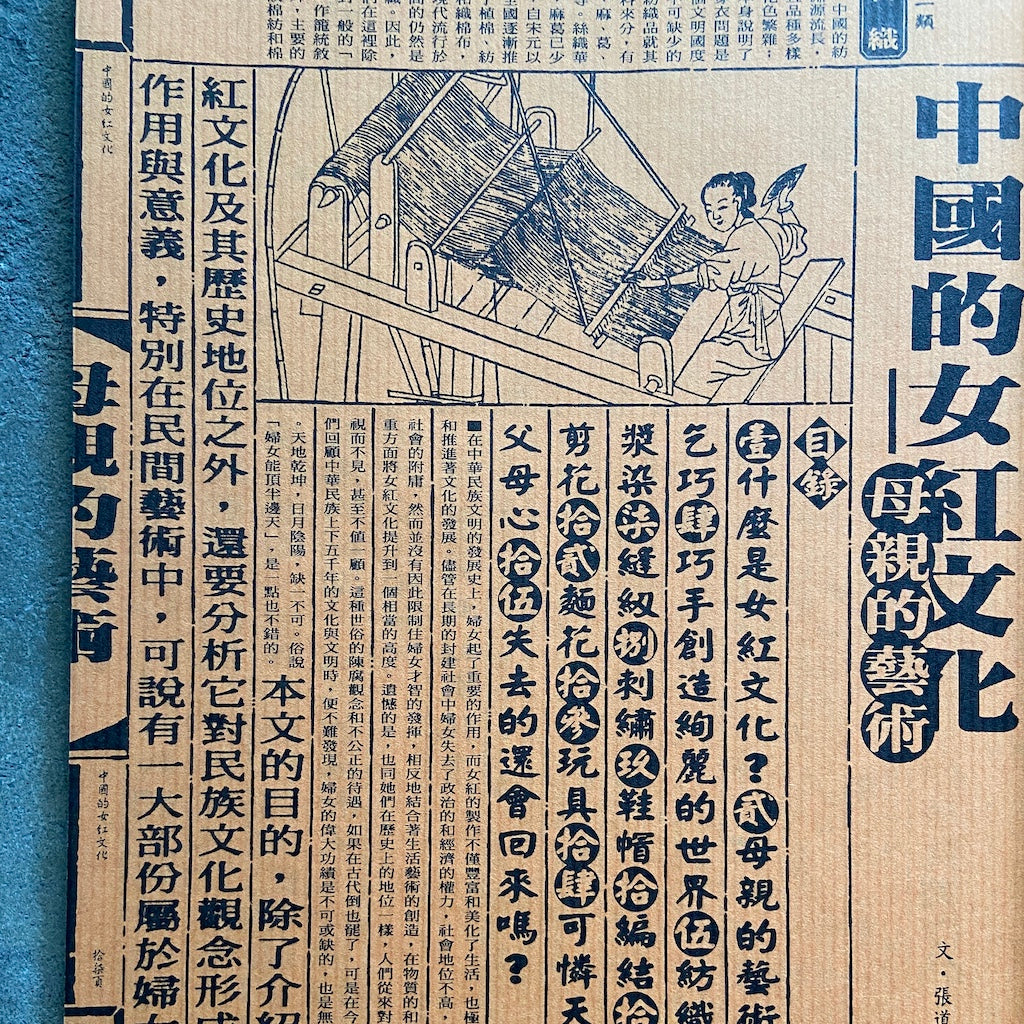 類
織
中國的紡
源流長，
且品種多樣
花色繁雜；
身說明了
衣問題是
個文明國度
不可缺少的
紡織品就其
料來分，有
麻、葛、
等。絲織華
麻葛已少
，自宋元以
全國逐漸推
了植棉、紡
和織棉布，
現代流行於
間的仍然是
織。因此，
們在這裡除
對一般的「
作籠統敘
，主要的
棉紡和棉
中國的女紅文化
—母親的藝術
文・張道
目錄
壹什麼是女紅文化？貳母親的藝術
乞巧肆巧手創造絢麗的世界伍紡織
漿染柒縫紉捌刺繡玖鞋帽拾編結拾
剪花拾貳麵花拾參玩具拾肆可憐天
父母心拾伍失去的還會回來嗎？
■在中華民族文明的發展史上，婦女起了重要的作用，而女紅的製作不僅豐富和美化了生活，也極
和推進著文化的發展。儘管在長期的封建社會中婦女失去了政治的和經濟的權力，社會地位不高，
社會的附庸，然而並沒有因此限制住婦女才智的發揮，相反地結合著生活藝術的創造，在物質的和
重方面將女紅文化提升到一個相當的高度。遺憾的是，也同她們在歷史上的地位一樣，人們從來對
視而不見，甚至不值一顧。這種世俗的陳腐觀念和不公正的待遇，如果在古代倒也罷了，可是在今
們回顧中華民族上下五千年的文化與文明時，便不難發現，婦女的偉大功績是不可或缺的，也是無
。天地乾坤，日月陰陽，缺一不可。俗說
「婦女能頂半邊天」，是一點也不錯的。
本文的目的，除了介紹
紅文化及其歷史地位之外，還要分析它對民族文化觀念形成
作用與意義，特別在民間藝術中，可說有一大部份屬於婦女
中國的女紅文化
母親的藝術
中國的女紅文化
拾柒頁